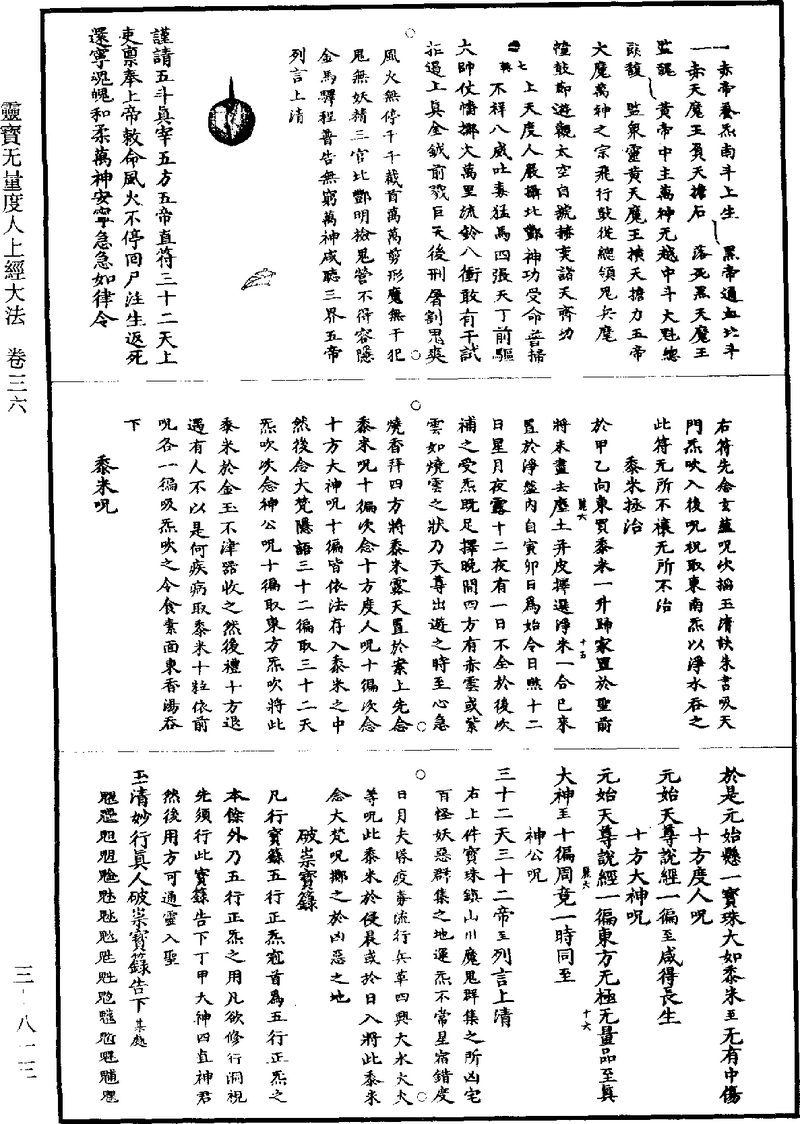 靈寶无量度人上經大法　卷三六
三－八一三
一赤帝養炁南斗上生　黑帝通血北斗
一赤天魔王負天擔石　落死黑天魔王
監醜　黃帝中主萬神无越中斗大魁總
監衆靈黃天魔王橫天擔力五帝
大魔萬神之宗飛行鼓從總領鬼兵麾
幢鼓節遊觀太空自號赫奕諸天齊功
上天度人嚴攝北酆神功受命普掃
不祥八威吐毒猛馬四張天丁前驅
大師仗幡擲火萬里流鈴八衝敢有干試
拒遏上真金鉞前戮巨天後刑屠割鬼爽
風火無停千千截首萬萬剪形魔無干犯
鬼無妖精三官北酆明檢鬼營不得容隱
金馬驛程普告無窮萬神咸聽三界五帝
列言上清
謹請五斗真宰五方五帝直符三十二天上
吏稟奉上帝敕命風火不停回尸注生返死
還寧魂魄和柔萬神安寧急急如律令
右符先念玄蘊呪次掐玉清訣朱書吸天
門炁吹入後呪祝取東南炁以淨水吞之
此符无所不禳无所不治
黍米拯治
於甲乙向東買黍米一升歸家置於聖前
將米盡去塵土并皮擇選淨朱一合已來
置於淨盤內自寅卯日為始令日煞十二
日星月夜露十二夜有一日不全於後次
補之受炁既足擇晚間四方有赤雲或紫
雲如燒雲之狀乃天尊出遊之時至心急
燒香拜四方將黍米露天置於案上先念
黍米呪十徧次念十方度人呪十徧次念
十方大神呪十徧皆依法存入黍米之中
然後念大梵隱語三十二徧取三十二天
炁吹次念神公呪十徧取東方炁吹將此
黍米於金玉不津器收之然後禮十方退
遇有人不以是何疾病取黍米十粒依前
呪各一徧吸炁吹之令食素面東香湯吞
下
黍米呪
於是元始懸一寶珠大如黍米至无有中傷
十方度人呪
元始天尊說經一徧至咸得長生
十方大神呪
元始天尊說經一徧東方无極无量品至真
大神至十徧周竟一時同至
神公呪
三十二天三十二帝至列言上清
右上件寶珠鎮山川魔鬼群集之所凶宅
百怪妖惡群集之地運炁不常星宿錯度
日月失昏疫毒流行兵革四興大水火灾
等呪此黍米於侵晨或於日入將此黍米
念大梵呪擲之於凶惡之地
破祟寶籙
凡行寶籙五行正炁冠首為五行正炁之
本餘外乃五行正炁之用凡欲修行洞視
先須行此寶籙告下丁甲大神四直神君
然後用方可通靈入聖
玉清妙行真人破祟寶籙告下某處